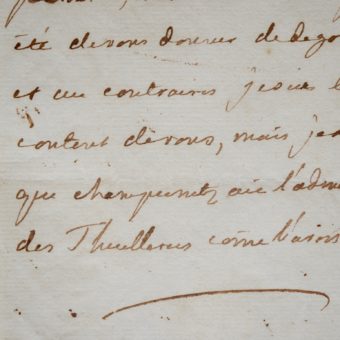 été de vous donner de dego
et au contraire je suis
content de vous, mais je
que champcenetz aie l'adm
des Thuilleries come l'avoi